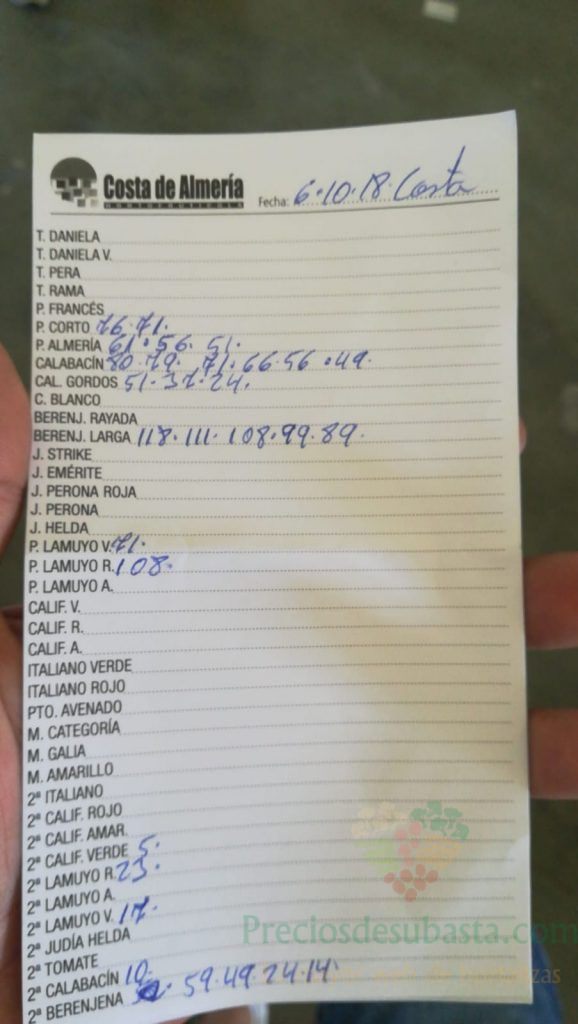 Costa de Almería
HORTOFRUTÍCOLA
Fecha: 6.10.18. Costa
T. DANIELA
T. DANIELA V.
T. PERA
T. RAMA
P. FRANCÉS
P. CORTO 76.71.
P. ALMERÍA 61.56.51.
CALABACÍN 80.79. 71.66.56.49.
CAL. GORDOS 51.37.24.
C. BLANCO
BERENJ. RAYADA
BERENJ. LARGA 118.111.108.99.89.
J. STRIKE
J. EMÉRITE
J. PERONA ROJA
J. PERONA
J. HELDA
P. LAMUYO V. 71.
P. LAMUYO R. 108.
P. LAMUYO A.
CALIF. V.
CALIF. R.
CALIF. A.
ITALIANO VERDE
ITALIANO ROJO
PTO. AVENADO
M. CATEGORÍA
M. GALIA
M. AMARILLO
2ª ITALIANO
2ª CALIF. ROJO
2ª CALIF. AMAR.
2ª CALIF. VERDE 5.
2ª LAMUYO R. 23.
2ª LAMUYO A.
2ª LAMUYO V. 17.
2ª JUDÍA HELDA
2ª TOMATE
2ª CALABACÍN 10.
2ª BERENJENA 59.49.24.14.
Preciosdesubasta.com